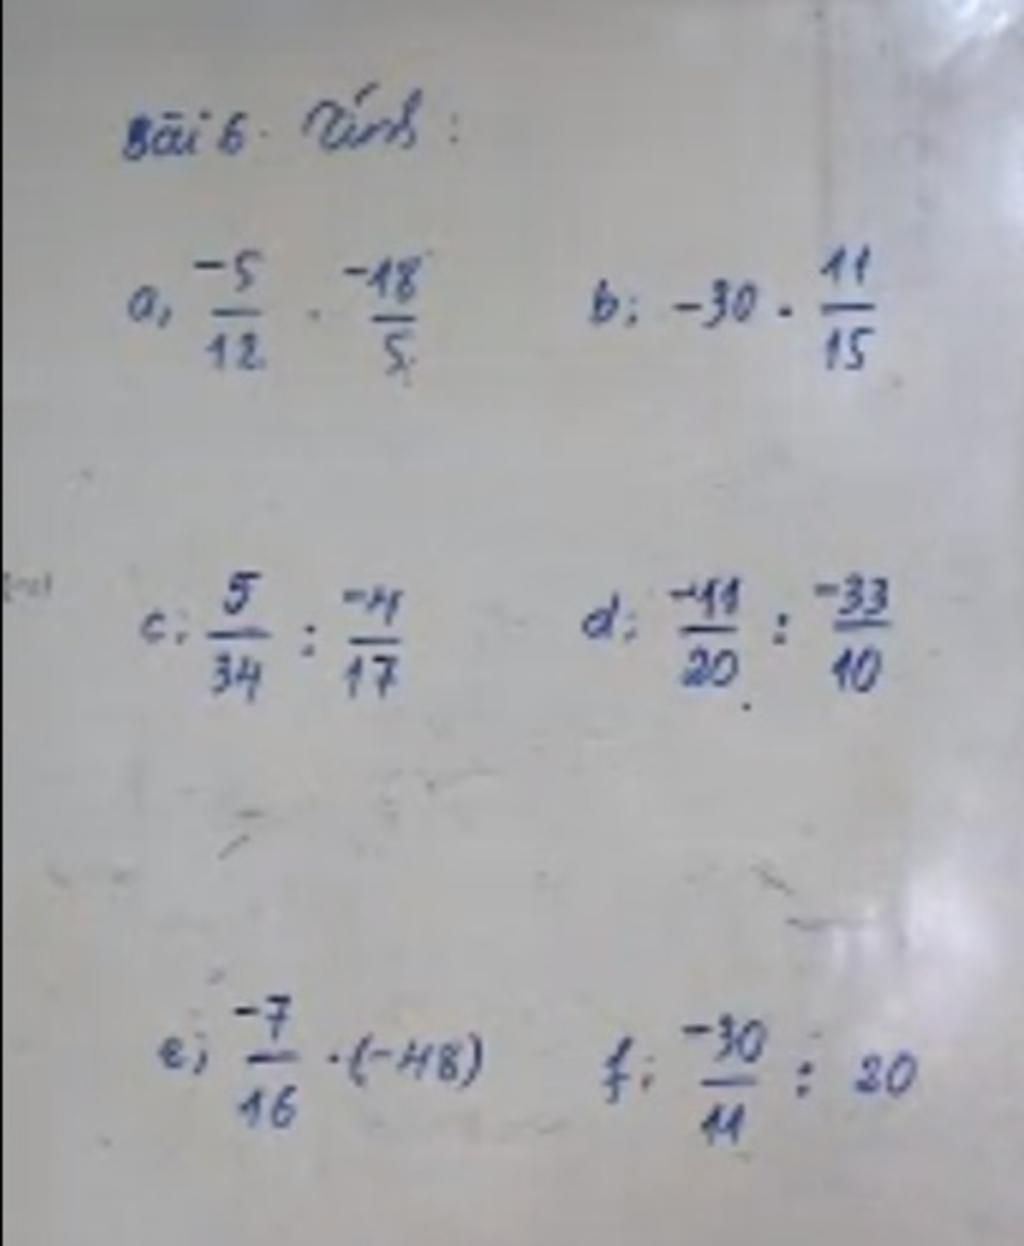 Bài 6. Tính:
a, -5/12 . -18/5 b; -30 . 11/15
c; 5/34 : -4/17 d; -11/20 : -33/10
e; -7/16 . (-48) f; -30/11 : 20